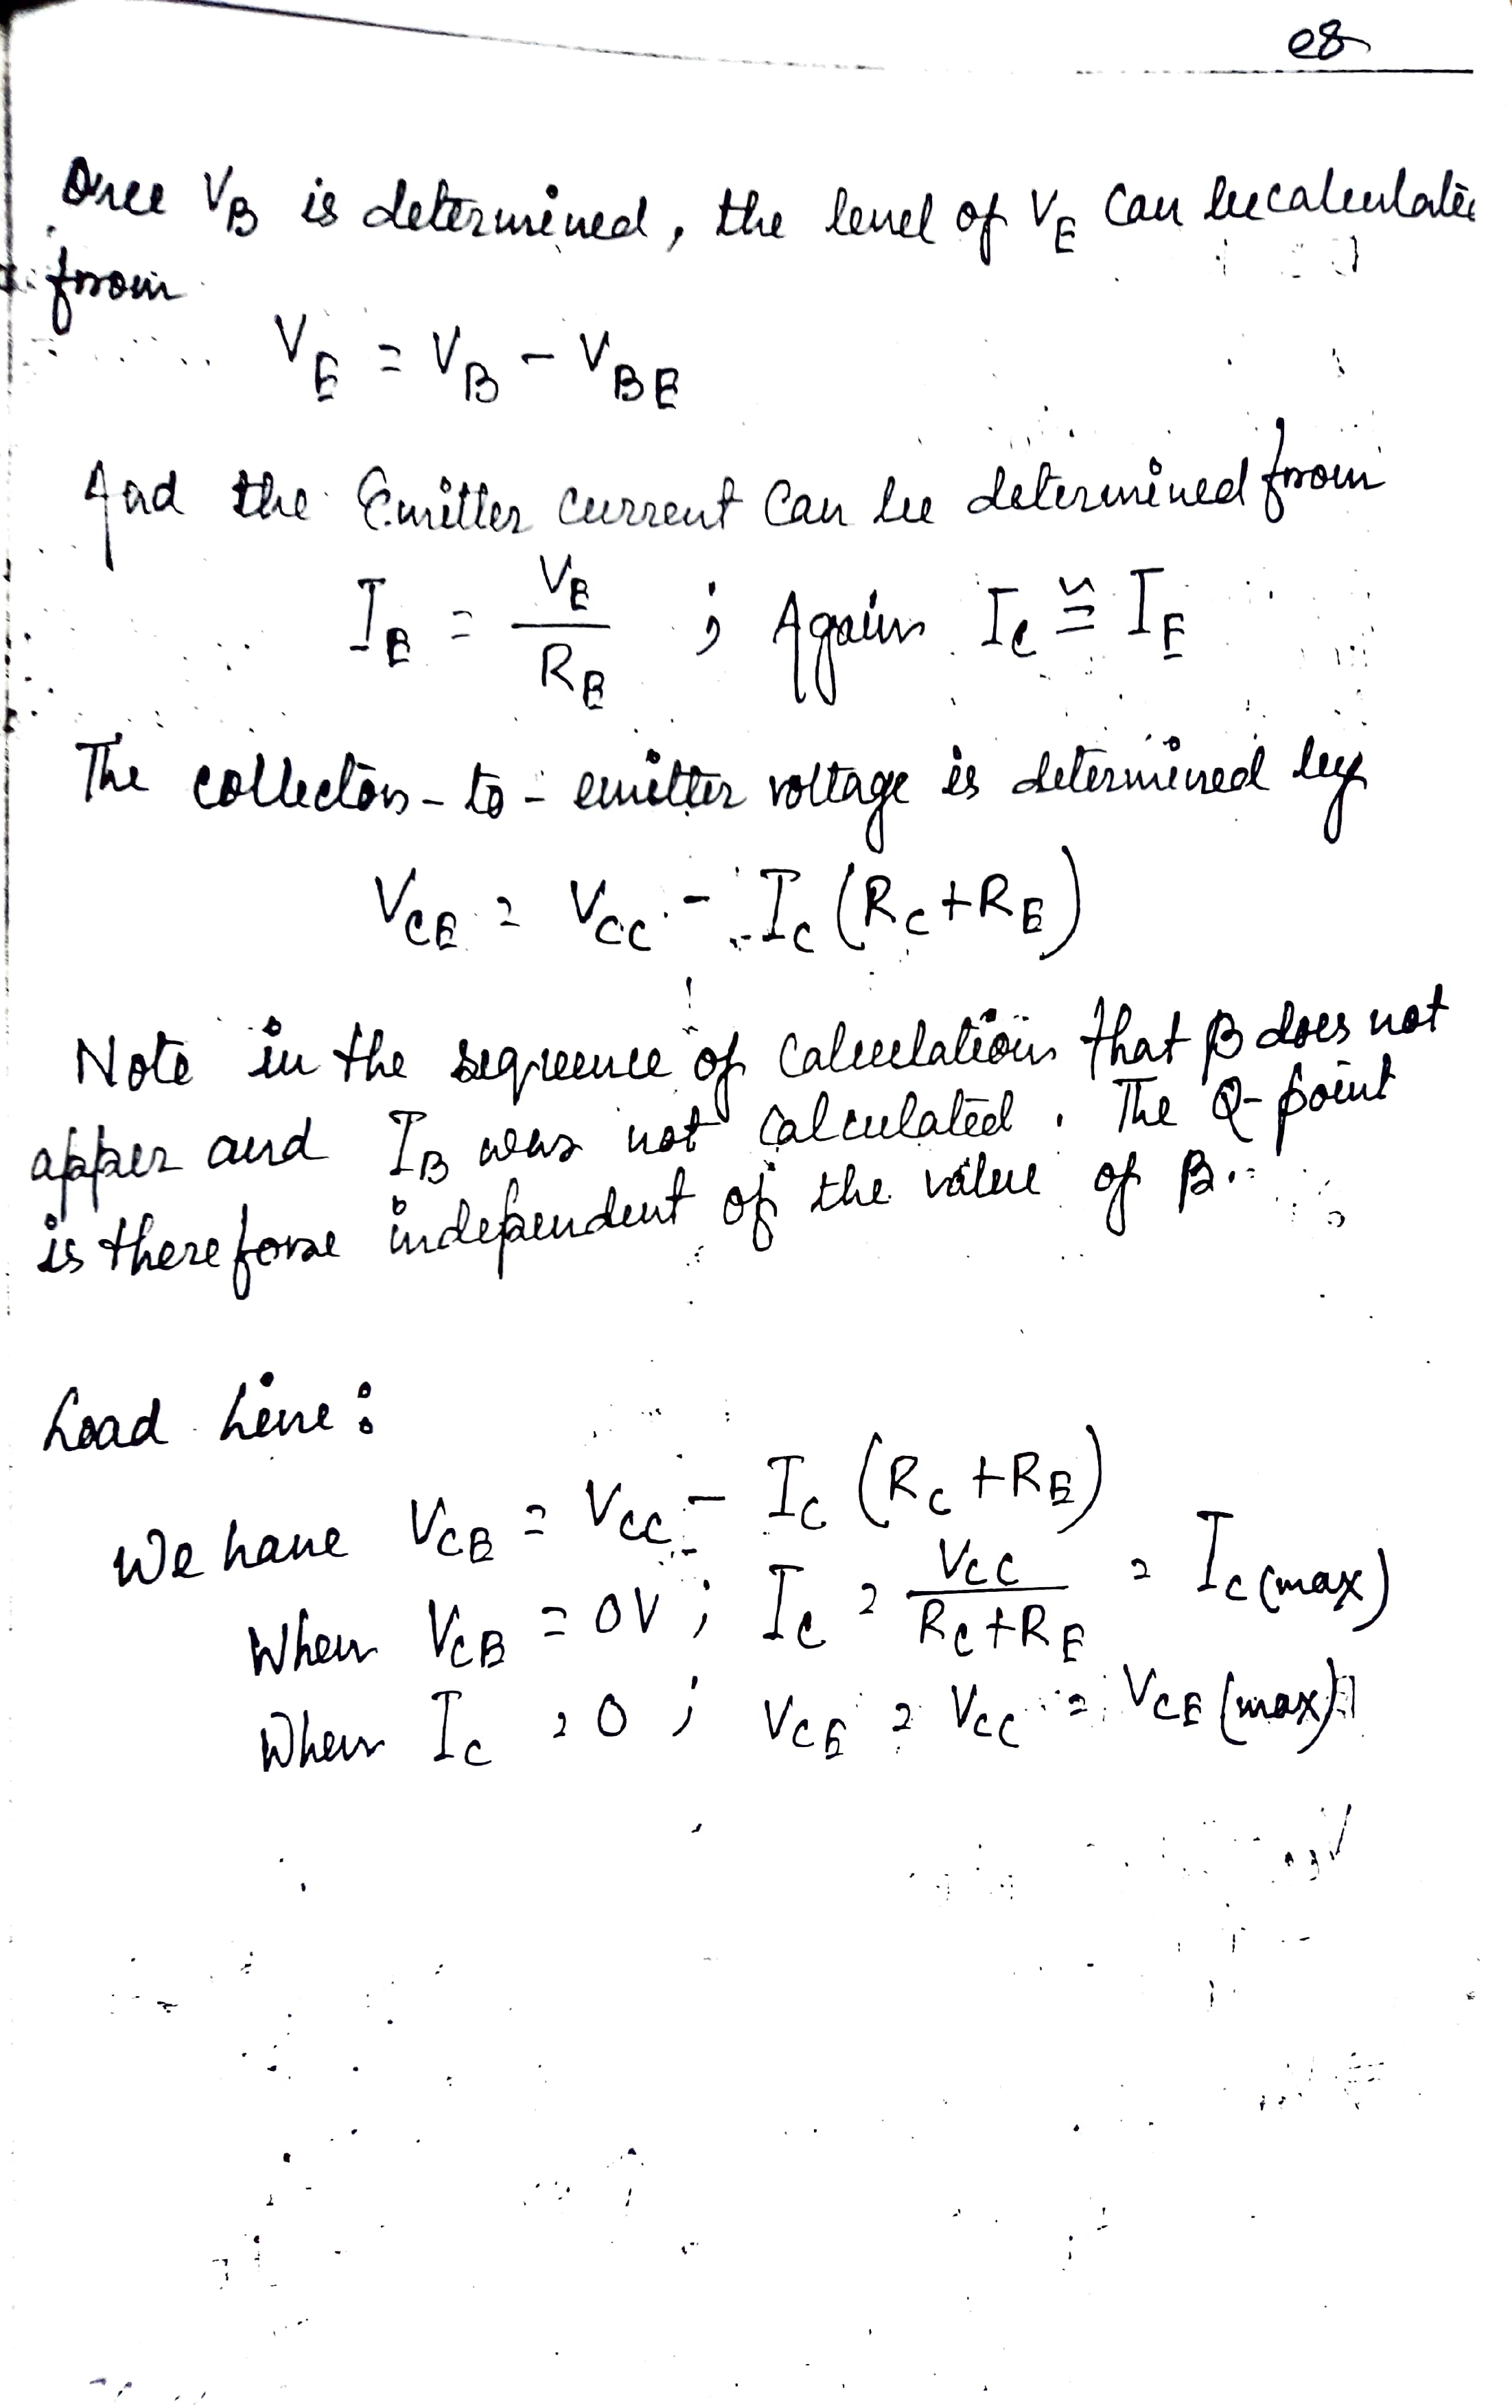 08
Once V_B is determined, the level of V_E can be calculated
from
V_E = V_B - V_BE
And the Emitter current can be determined from
I_E = V_E / R_E ; Again I_C ≅ I_E
The collector-to-emitter voltage is determined by
V_CE = V_CC - I_C (R_C + R_E)
Note in the sequence of calculations that β does not
apper and I_B was not calculated. The Q-point
is therefore independent of the value of β.
Load Line:
We have V_CE = V_CC - I_C (R_C + R_E)
When V_CE = 0V ; I_C = V_CC / R_C + R_E = I_C (max)
When I_C = 0 ; V_CE = V_CC = V_CE (max)